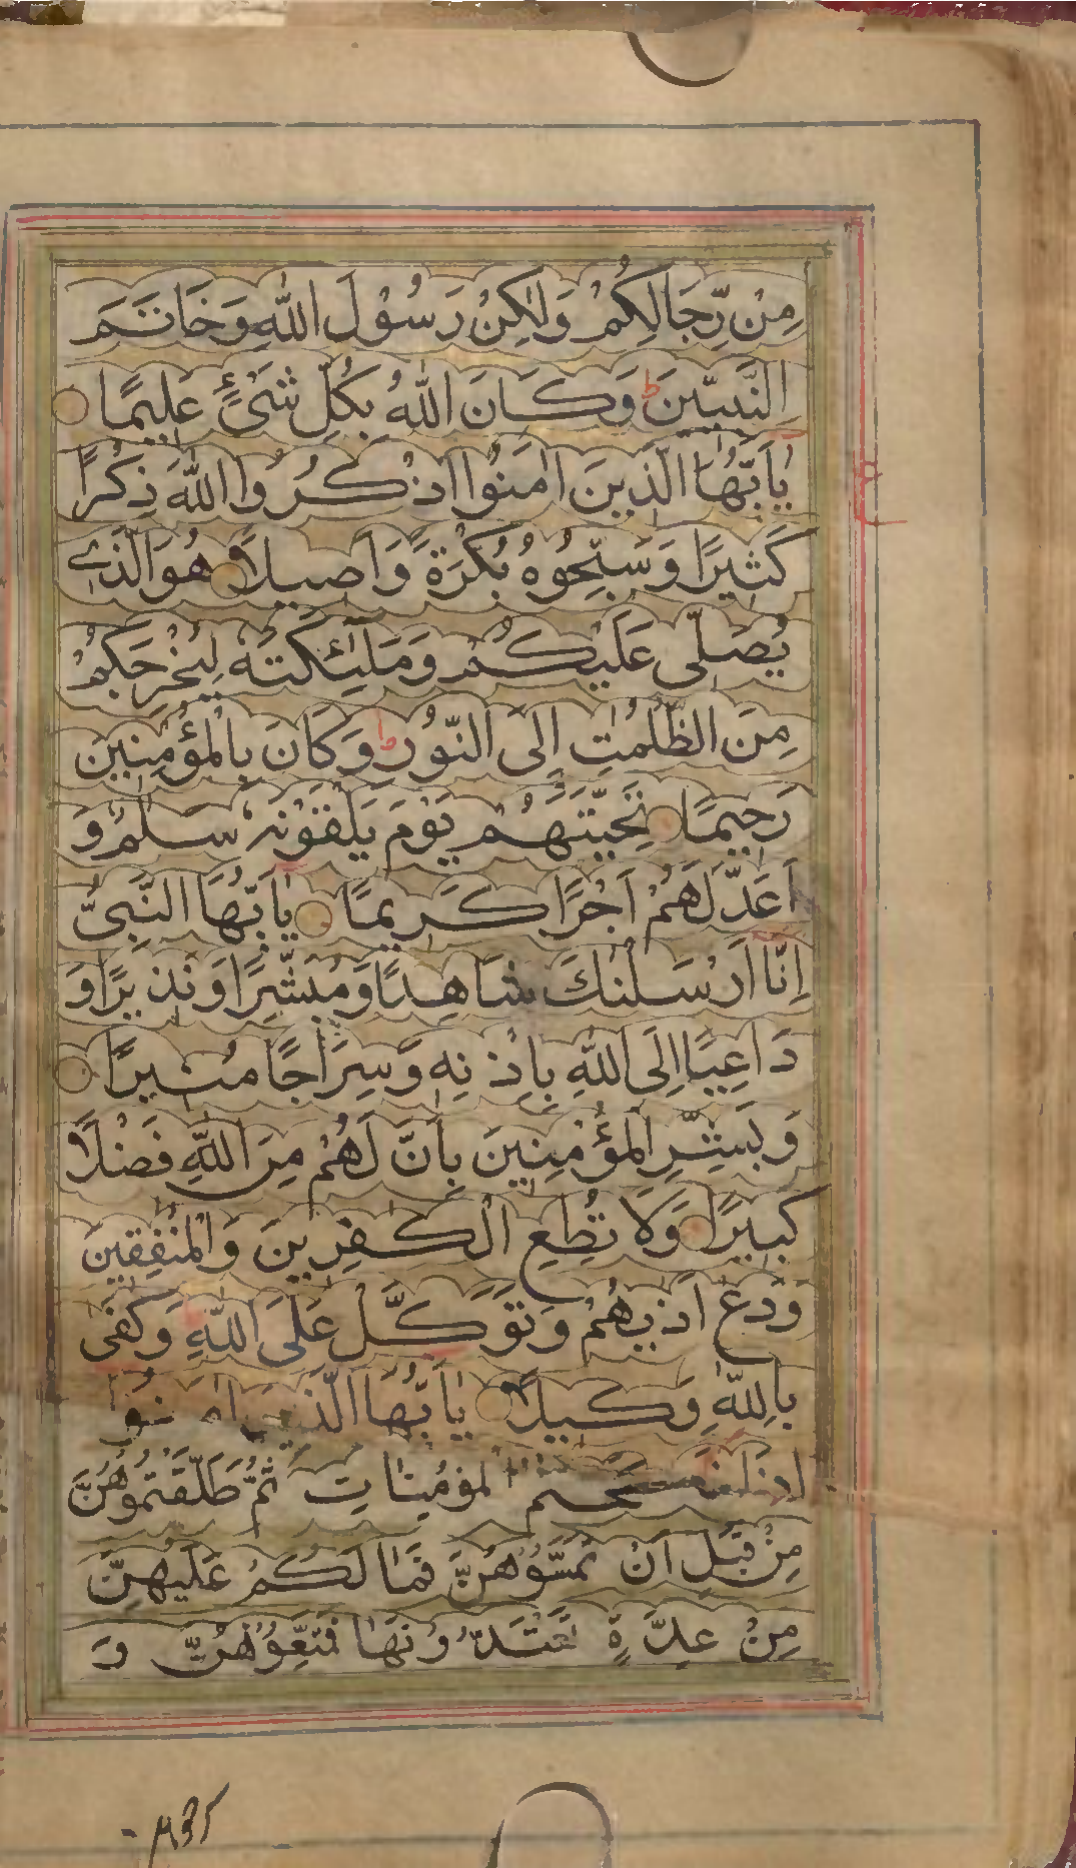 مِنْ رِّجَالِكُمْ وَلٰكِنْ رَسُوْلَ اللّٰهِ وَخَاتَمَ
النَّبِيّٖنَ ؕ وَكَانَ اللّٰهُ بِكُلِّ شَيْءٍ عَلِيمًا
يٰاَيُّهَا الَّذِينَ اٰمَنُوا اذْكُرُوا اللّٰهَ ذِكْرًا
كَثِيْرًا وَسَبِّحُوْهُ بُكْرَةً وَاَصِيلًا هُوَ الَّذِي
يُصَلِّى عَلَيْكُمْ وَمَلٰٓئِكَتُهٗ لِيُخْرِجَكُمْ
مِنَ الظُّلُمٰتِ اِلَى النُّورِ ؕ وَكَانَ بِالْمُؤْمِنِينَ
رَحِيمًا تَحِيَّتُهُمْ يَوْمَ يَلْقَوْنَهٗ سَلٰمٌ وَ
اَعَدَّ لَهُمْ اَجْرًا كَرِيمًا يٰاَيُّهَا النَّبِىُّ
اِنَّا اَرْسَلْنٰكَ شَاهِدًا وَمُبَشِّرًا وَنَذِيرًا وَ
دَاعِيًا اِلَى اللّٰهِ بِاِذْنِهٖ وَسِرَاجًا مُنِيرًا
وَبَشِّرِ الْمُؤْمِنِينَ بِاَنَّ لَهُمْ مِنَ اللّٰهِ فَضْلًا
كَبِيرًا وَلَا تُطِعِ الْكٰفِرِينَ وَالْمُنٰفِقِينَ
وَدَعْ اَذٰىهُمْ وَتَوَكَّلْ عَلَى اللّٰهِ وَكَفٰى
بِاللّٰهِ وَكِيلًا يٰاَيُّهَا الَّذِينَ اٰمَنُوْا
اِذَا نَكَحْتُمُ الْمُؤْمِنَاتِ ثُمَّ طَلَّقْتُمُوْهُنَّ
مِنْ قَبْلِ اَنْ تَمَسُّوْهُنَّ فَمَا لَكُمْ عَلَيْهِنَّ
مِنْ عِدَّةٍ تَعْتَدُّوْنَهَا فَمَتِّعُوْهُنَّ وَ